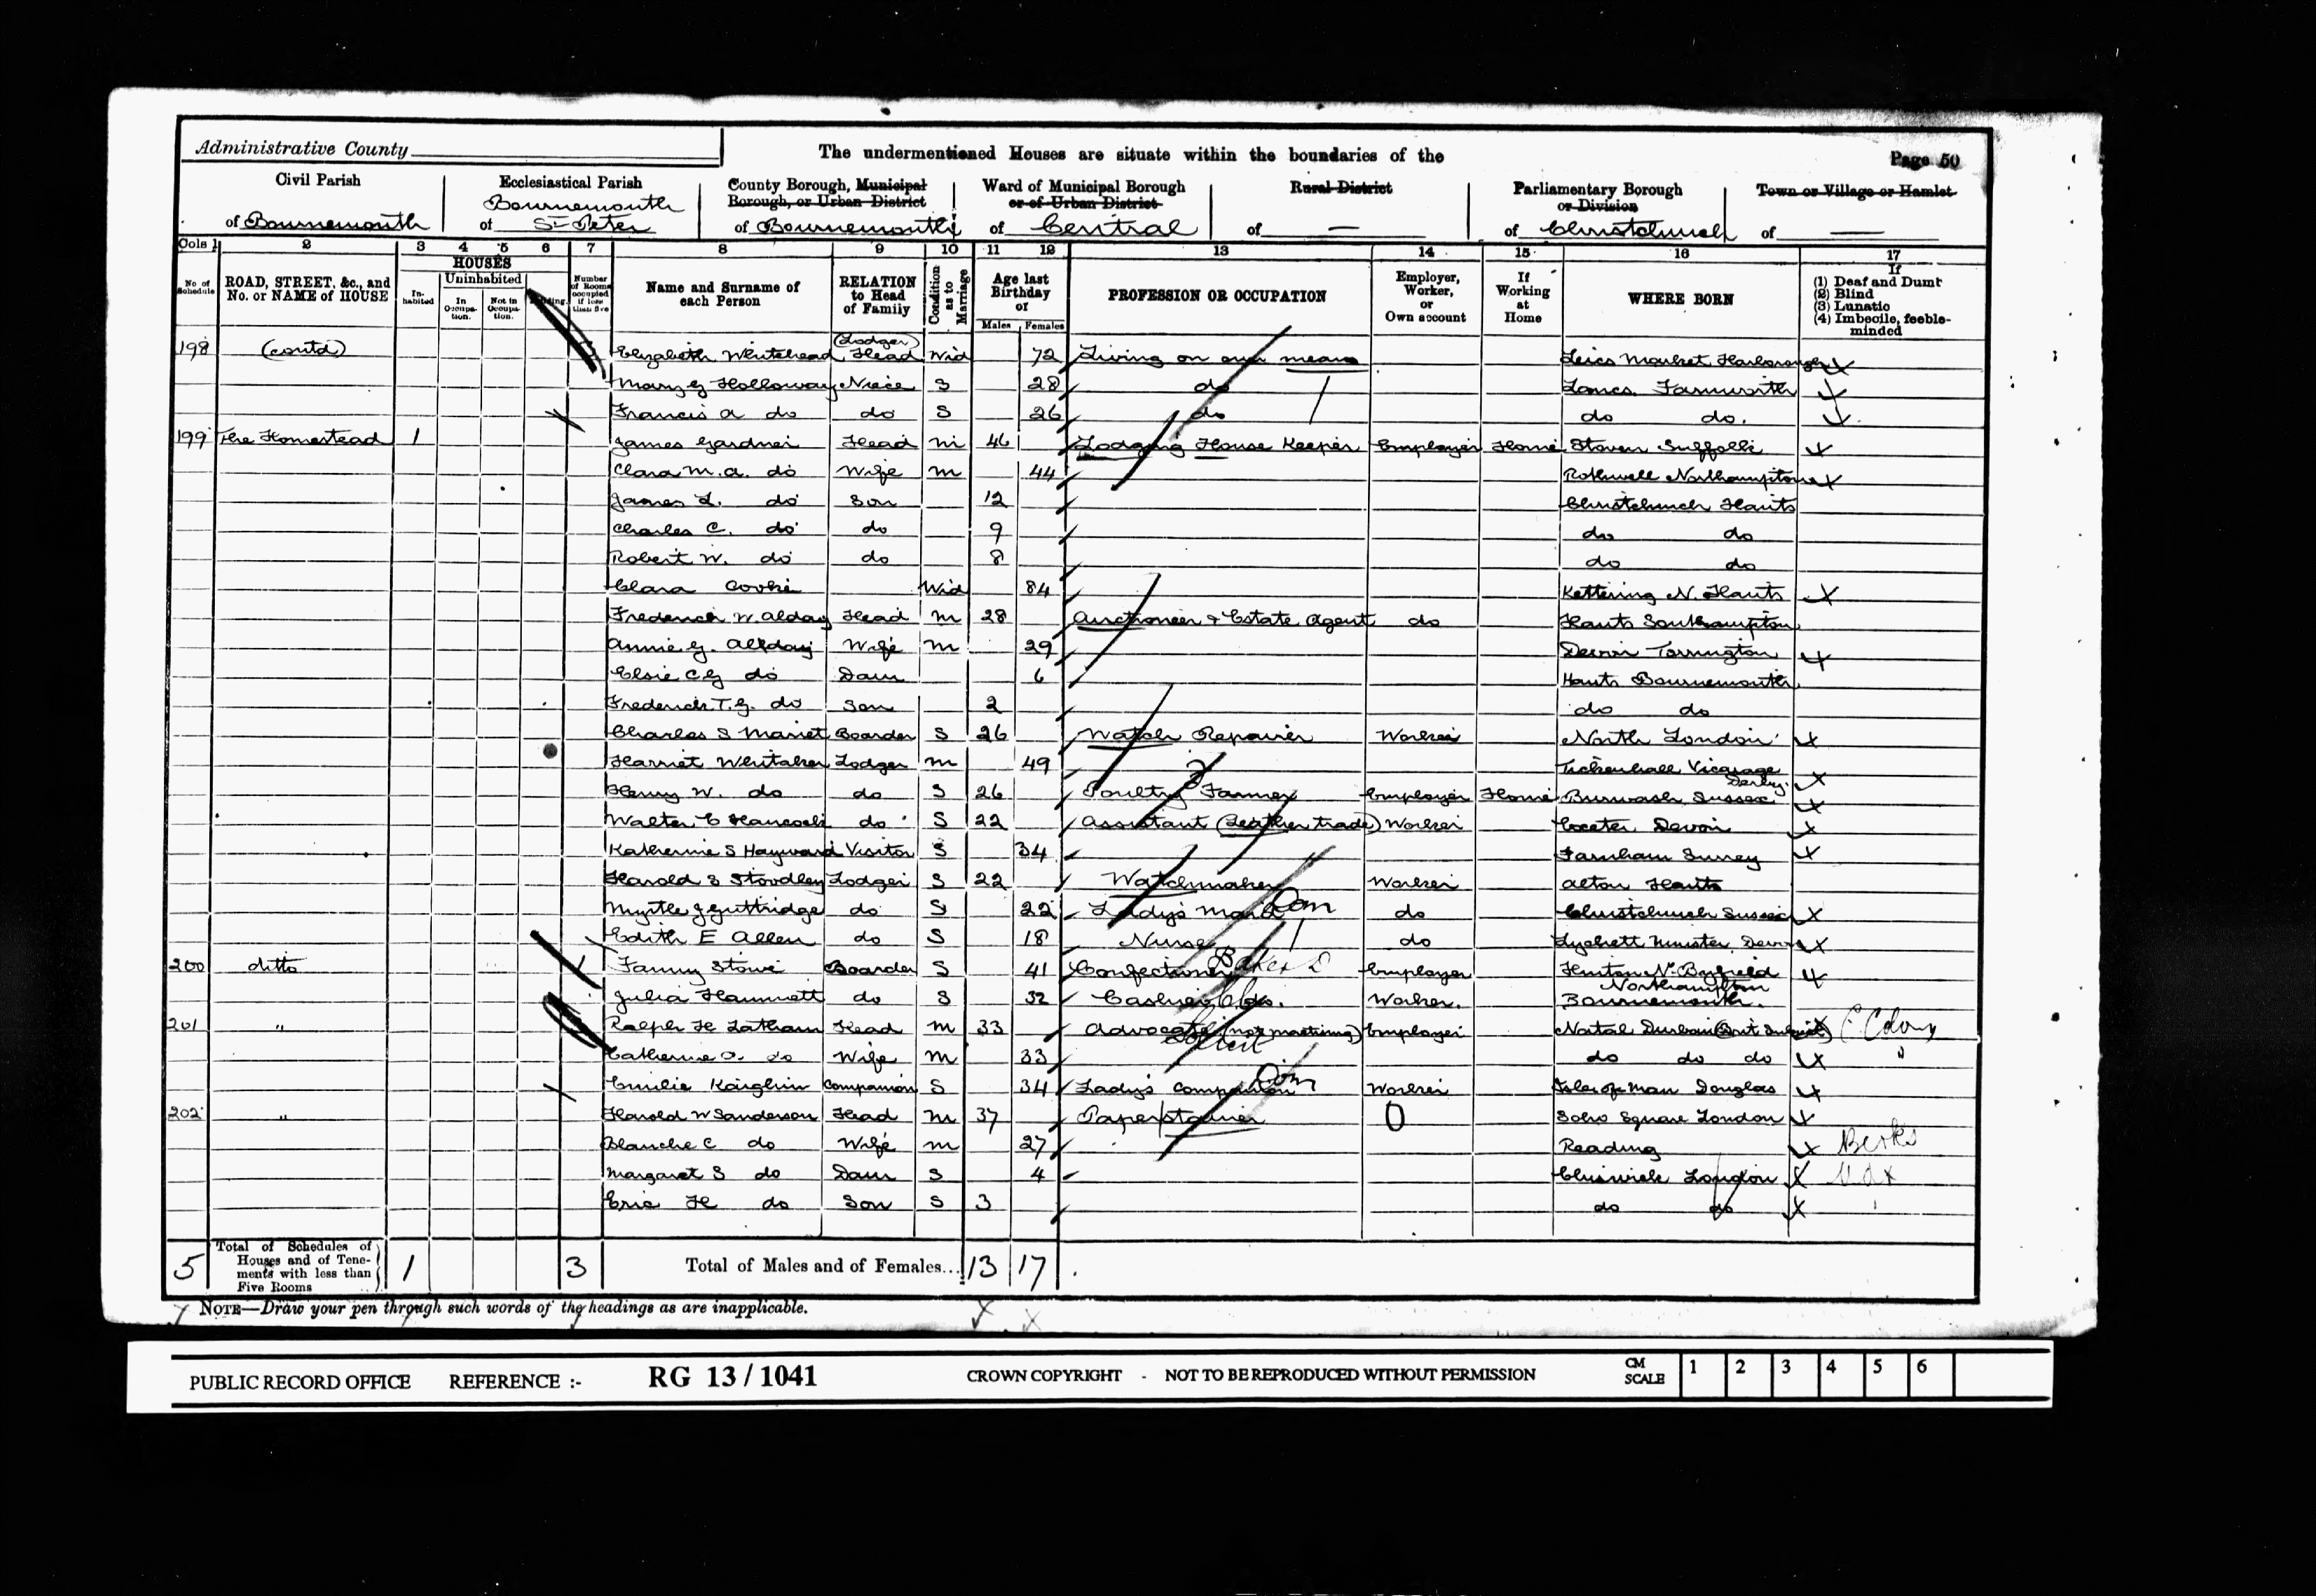 Administrative County
The undermentioned Houses are situate within the boundaries of the
Page 50
Civil Parish
of Bournemouth
Ecclesiastical Parish
Bournemouth
of St Peter
County Borough, Municipal
Borough, or Urban District
of Bournemouth
Ward of Municipal Borough
or of Urban District
of Central
Rural District
of —
Parliamentary Borough
or Division
of Christchurch
Town or Village or Hamlet
of —
Cols 1 2 3 4 5 6 7 8 9 10 11 12 13 14 15 16 17
No of Schedule
ROAD, STREET, &c., and No. or NAME of HOUSE
HOUSES
In-habited
Uninhabited
In Occupa-tion.
Not in Occupa-tion.
Number of Rooms occupied if less than five
Name and Surname of each Person
RELATION to Head of Family
Condition as to Marriage
Age last Birthday of
Males Females
PROFESSION OR OCCUPATION
Employer, Worker, or Own account
If Working at Home
WHERE BORN
If
(1) Deaf and Dumb
(2) Blind
(3) Lunatic
(4) Imbecile, feeble-minded
198 (contd) Elizabeth Whitehead (Lodger) Head Wid 72 Living on own means Leics Market Harborough
Mary G Holloway Niece S 28 do Lancs. Farnworth
Francis A do do S 26 do do do.
199 The Homestead 1 James Gardner Head M 46 Lodging House Keeper Employer Home Stoven Suffolk
Clara M.A. do Wife M 44 Rothwell Northampton
James L. do Son 12 Christchurch Hants
Charles C. do do 9 do do
Robert W. do do 8 do do
Clara Cooke Wid 84 Kettering N. Hants
Frederick W. Alday Head M 28 Auctioneer & Estate Agent do Hants Southampton
Annie G. Allday Wife M 29 Devon Torrington
Elsie C G do Daur 6 Hants Bournemouth
Frederick T. G. do Son 2 do do
Charles S Boarder S 26 Watch Repairer Worker North London
Harriet Whitaker Lodger M 49 Ticknhall Vicarage Derby
Henry W. do do S 26 Poultry Farmer Employer Home Burwash Sussex
Walter C Hancock do S 22 Assistant (Leather trade) Worker Exeter Devon
Katherine S Hayward Visitor S 34 Farnham Surrey
Harold S Stoodley Lodger S 22 Watchmaker Worker Alton Hants
Myrtle J Guttridge do S 22 Lady's Maid Dom do Christchurch Sussex
Edith E Allen do S 18 Nurse do Lychett Minster Devon
200 ditto Fanny Stowe Boarder S 41 Confectioner Baker Employer Northampton
Julia Hammett do S 32 Cashier do. Worker. Bournemouth.
201 " Ralph H Latham Head M 33 Advocate (not practising) Employer Natal Durban (Brit Subject) Colony
Catherine A. do Wife M 33 do do do "
Emilie Companion S 34 Lady's Companion Dom Worker Isle of Man Douglas
202 " Harold W Sanderson Head M 37 Paperstainer O Soho Square London
Blanche C do Wife M 27 Reading Berks
Margaret S do Daur S 4 Chiswick London Mdx
Eric H do Son S 3 do do
5 Total of Schedules of Houses and of Tene-ments with less than Five Rooms 1 3 Total of Males and of Females... 13 17
NOTE—Draw your pen through such words of the headings as are inapplicable.
PUBLIC RECORD OFFICE REFERENCE :- RG 13 / 1041 CROWN COPYRIGHT - NOT TO BE REPRODUCED WITHOUT PERMISSION CM SCALE 1 2 3 4 5 6